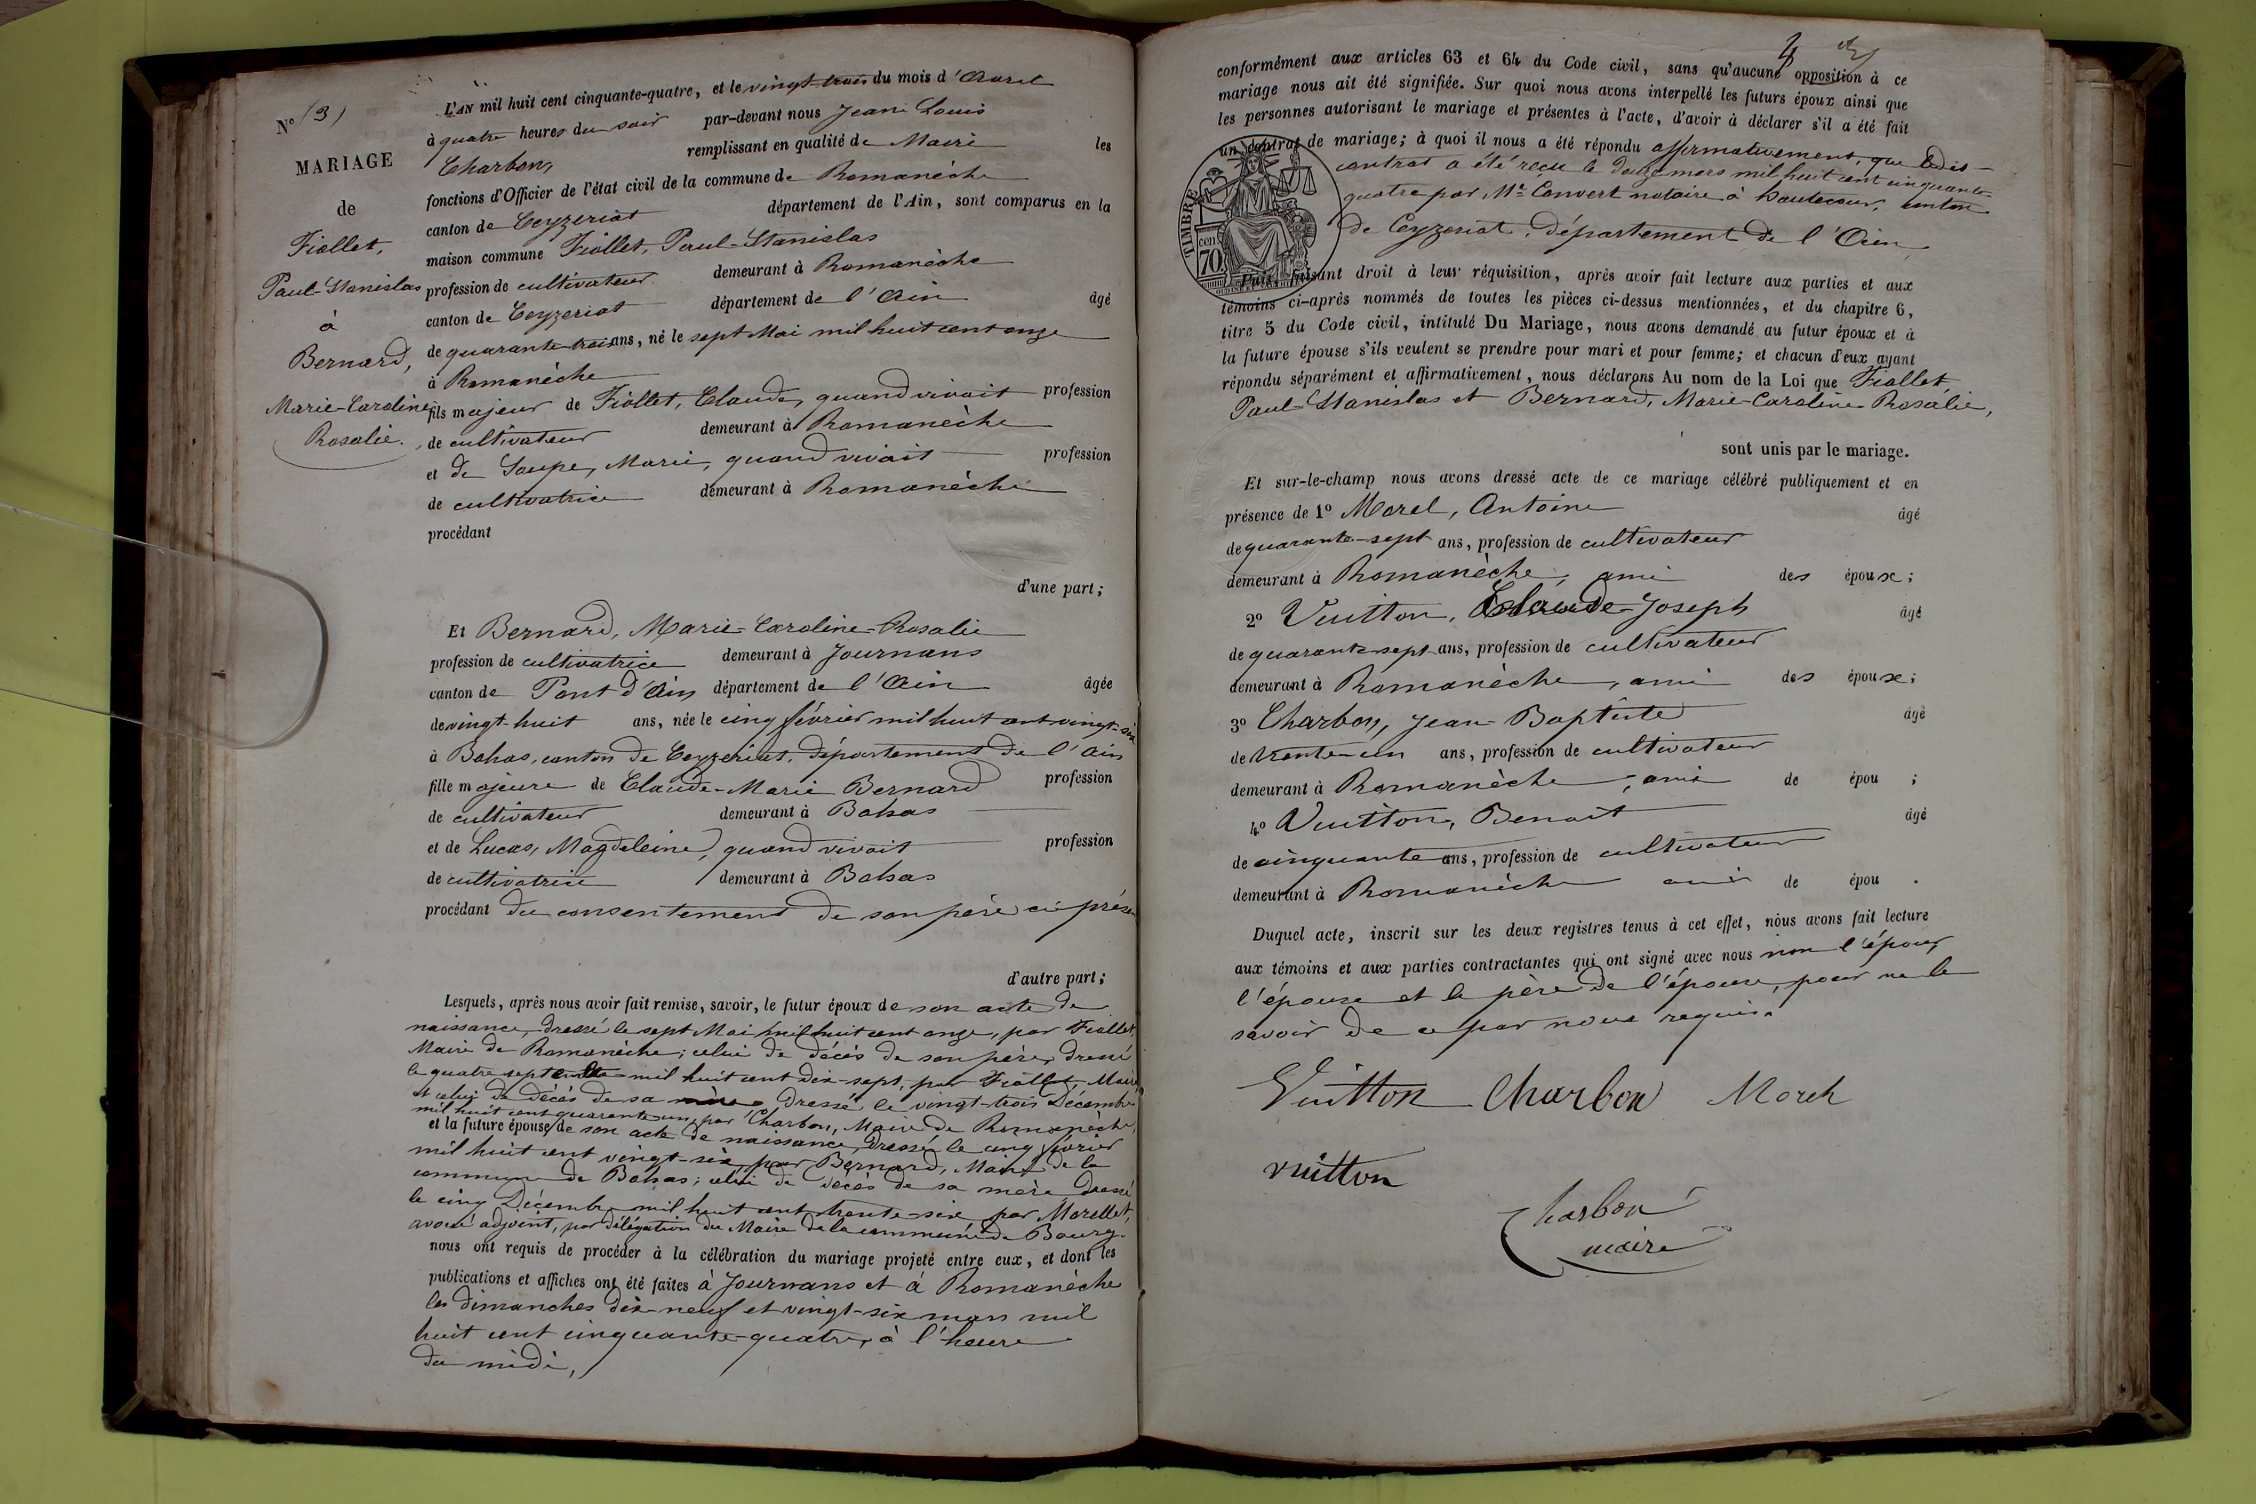 N° (3)
MARIAGE
de
Fiollet,
Paul-Stanislas
à
Bernard,
Marie-Caroline
Rosalie.
L'AN mil huit cent cinquante-quatre, et le vingt-trois du mois d'Avril
à quatre heures du soir par-devant nous Jean Louis
Charbon, remplissant en qualité de Maire les
fonctions d'Officier de l'état civil de la commune de Romanèche
canton de Ceyzeriat département de l'Ain, sont comparus en la
maison commune Fiollet, Paul-Stanislas
profession de cultivateur demeurant à Romanèche
canton de Ceyzeriat département de l'Ain âgé
de quarante-trois ans, né le sept Mai mil huit cent onze
à Romanèche
fils majeur de Fiollet, Claude, quand vivait profession
de cultivateur demeurant à Romanèche
et de Soupe, Marie, quand vivait profession
de cultivatrice demeurant à Romanèche
procédant
d'une part;
Et Bernard, Marie-Caroline-Rosalie
profession de cultivatrice demeurant à Journans
canton de Pont d'Ain département de l'Ain âgée
de vingt-huit ans, née le cinq février mil huit cent vingt-six
à Bohas, canton de Ceyzeriat, département de l'Ain
fille majeure de Claude-Marie Bernard profession
de cultivateur demeurant à Bohas
et de Lucas, Magdeleine, quand vivait profession
de cultivatrice demeurant à Bohas
procédant du consentement de son père ci présen
d'autre part;
Lesquels, après nous avoir fait remise, savoir, le futur époux de son acte de
naissance, dressé le sept Mai mil huit cent onze, par Fiollet,
Maire de Romanèche; celui de décès de son père, dressé
le quatre septembre mil huit cent dix-sept, par Fiollet, Maire
et celui de décès de sa mère dressé le vingt-trois Décembre
mil huit cent quarante un, par Charbon, Maire de Romanèche,
et la future épouse de son acte de naissance, dressé le cinq février
mil huit cent vingt-six par Bernard, Maire de la
commune de Bohas; celui de décès de sa mère dressé
le cinq Décembre mil huit cent trente-six par Morellet,
avoué adjoint, par délégation du Maire de la commune de Bourg.
nous ont requis de procéder à la célébration du mariage projeté entre eux, et dont les
publications et affiches ont été faites à Journans et à Romanèche
les dimanches dix-neuf et vingt-six mars mil
huit cent cinquante-quatre, à l'heure
de midi,
4
conformément aux articles 63 et 64 du Code civil, sans qu'aucune opposition à ce
mariage nous ait été signifiée. Sur quoi nous avons interpellé les futurs époux ainsi que
les personnes autorisant le mariage et présentes à l'acte, d'avoir à déclarer s'il a été fait
un contrat de mariage; à quoi il nous a été répondu affirmativement, que ledit
contrat a été reçu le douze mars mil huit cent cinquante
quatre par Mr. Convert notaire à hautecour, canton
de Ceyzeriat, département de l'Ain,
TIMBRE
cen
70
Puis, faisant droit à leur réquisition, après avoir fait lecture aux parties et aux
témoins ci-après nommés de toutes les pièces ci-dessus mentionnées, et du chapitre 6,
titre 5 du Code civil, intitulé Du Mariage, nous avons demandé au futur époux et à
la future épouse s'ils veulent se prendre pour mari et pour femme; et chacun d'eux ayant
répondu séparément et affirmativement, nous déclarons Au nom de la Loi que Fiollet,
Paul-Stanislas et Bernard, Marie-Caroline-Rosalie,
sont unis par le mariage.
Et sur-le-champ nous avons dressé acte de ce mariage célébré publiquement et en
présence de 1° Morel, Antoine âgé
de quarante-sept ans, profession de cultivateur
demeurant à Romanèche, ami des époux;
2° Vuitton, Claude-Joseph âgé
de quarante-sept ans, profession de cultivateur
demeurant à Romanèche, ami des époux;
3° Charbon, Jean-Baptiste âgé
de trente-un ans, profession de cultivateur
demeurant à Romanèche, ami de épou ;
4° Vuitton, Benoit âgé
de cinquante ans, profession de cultivateur
demeurant à Romanèche ami de épou .
Duquel acte, inscrit sur les deux registres tenus à cet effet, nous avons fait lecture
aux témoins et aux parties contractantes qui ont signé avec nous non l'époux,
l'épouse et le père de l'épouse, pour ne le
savoir de ce par nous requis.
Vuitton Charbon Morel
vuitton
Charbon
maire